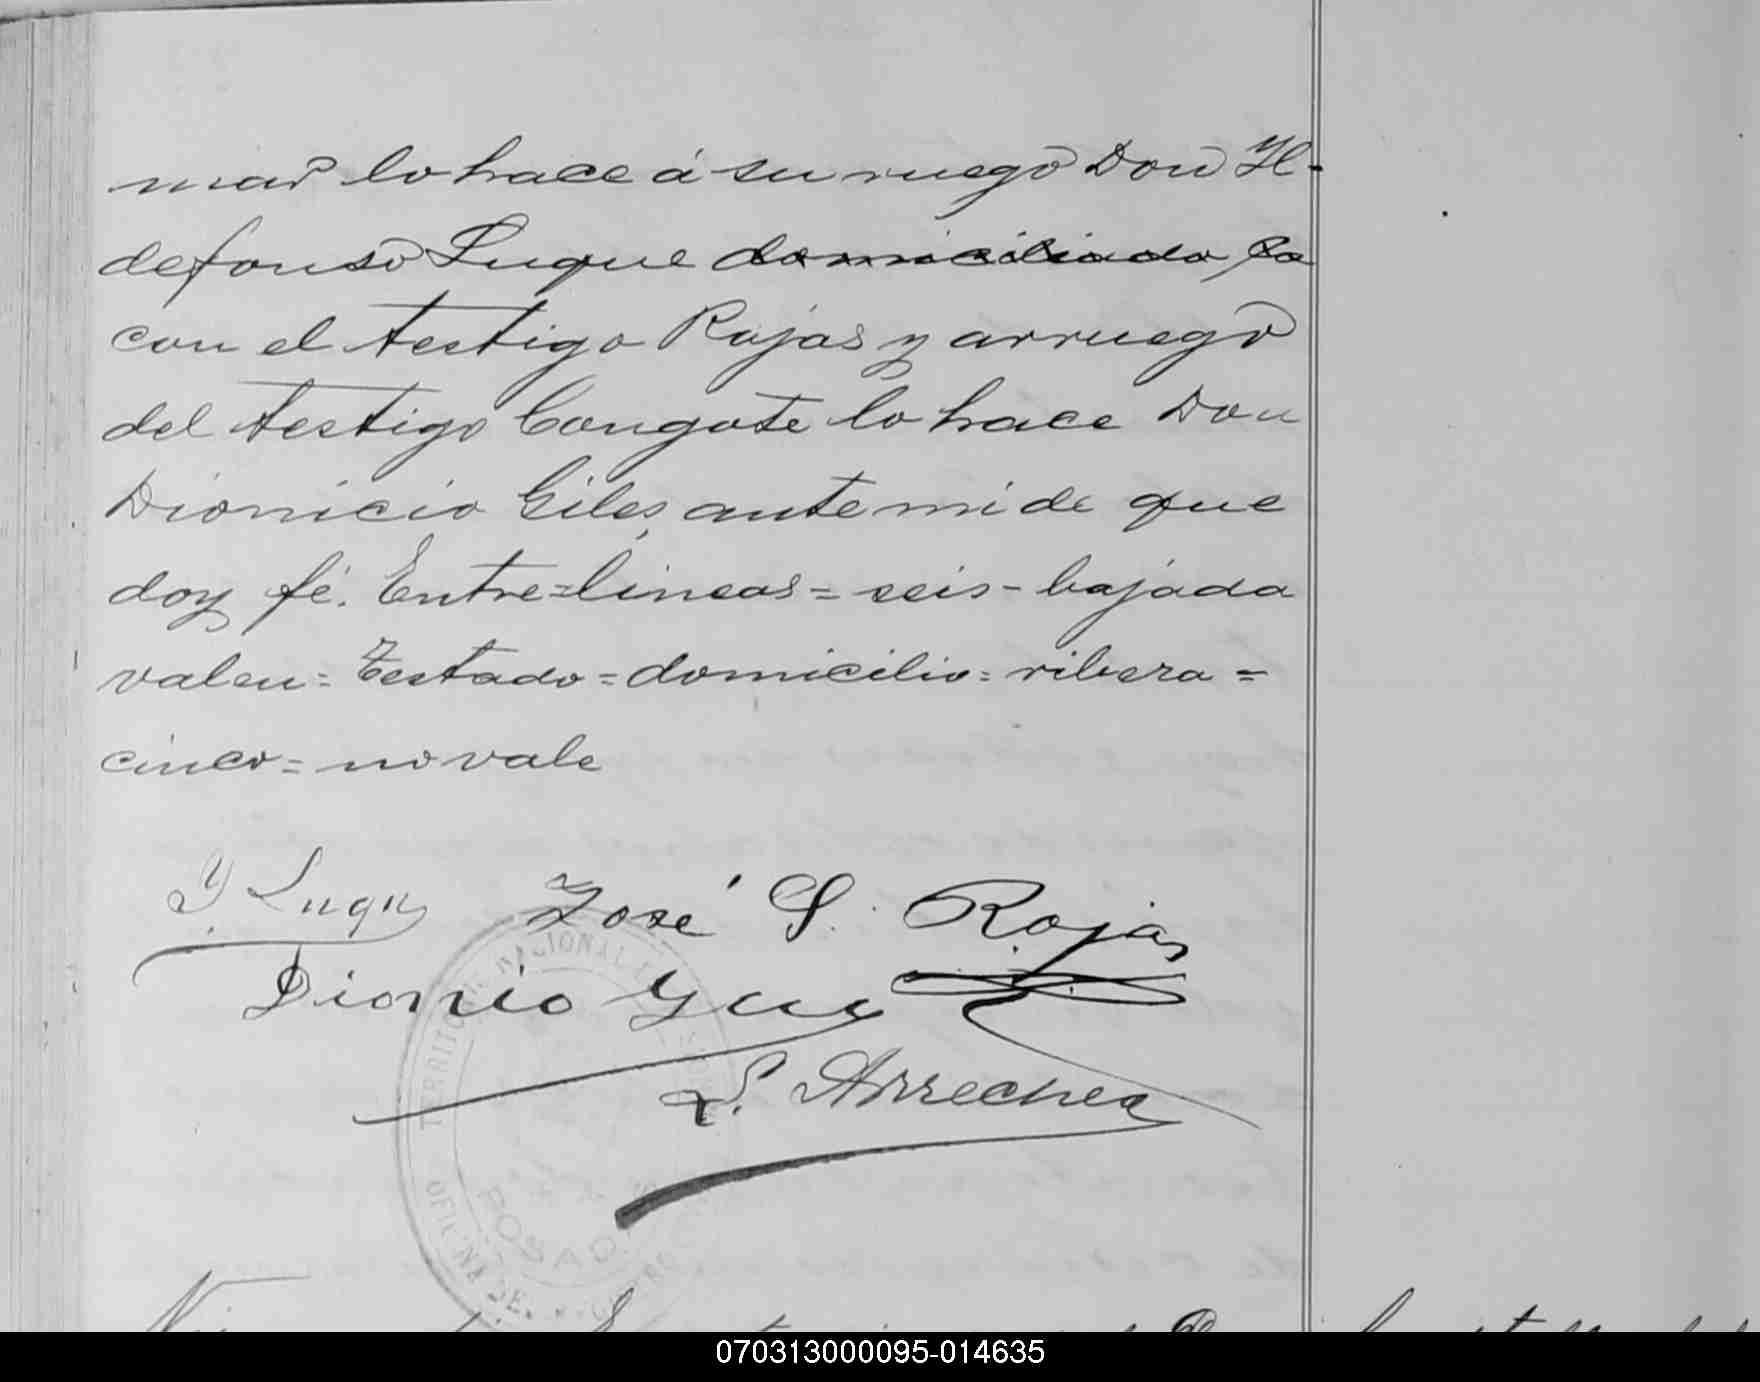 mar lo hace á su ruego Don Il-
defonso Luque domiciliado
con el testigo Rojas y arruego
del testigo Congote lo hace Don
Dionicio Giles, ante mi de que
doy fé. Entre=lineas=seis-bajada
valen=Testado=domicilio=ribera=
cinco=no vale
Y. Luque José S. Rojas
Dionicio
S. Arrechea
TERRITORIO NACIONAL
OFICINA DE
POSADAS
070313000095-014635